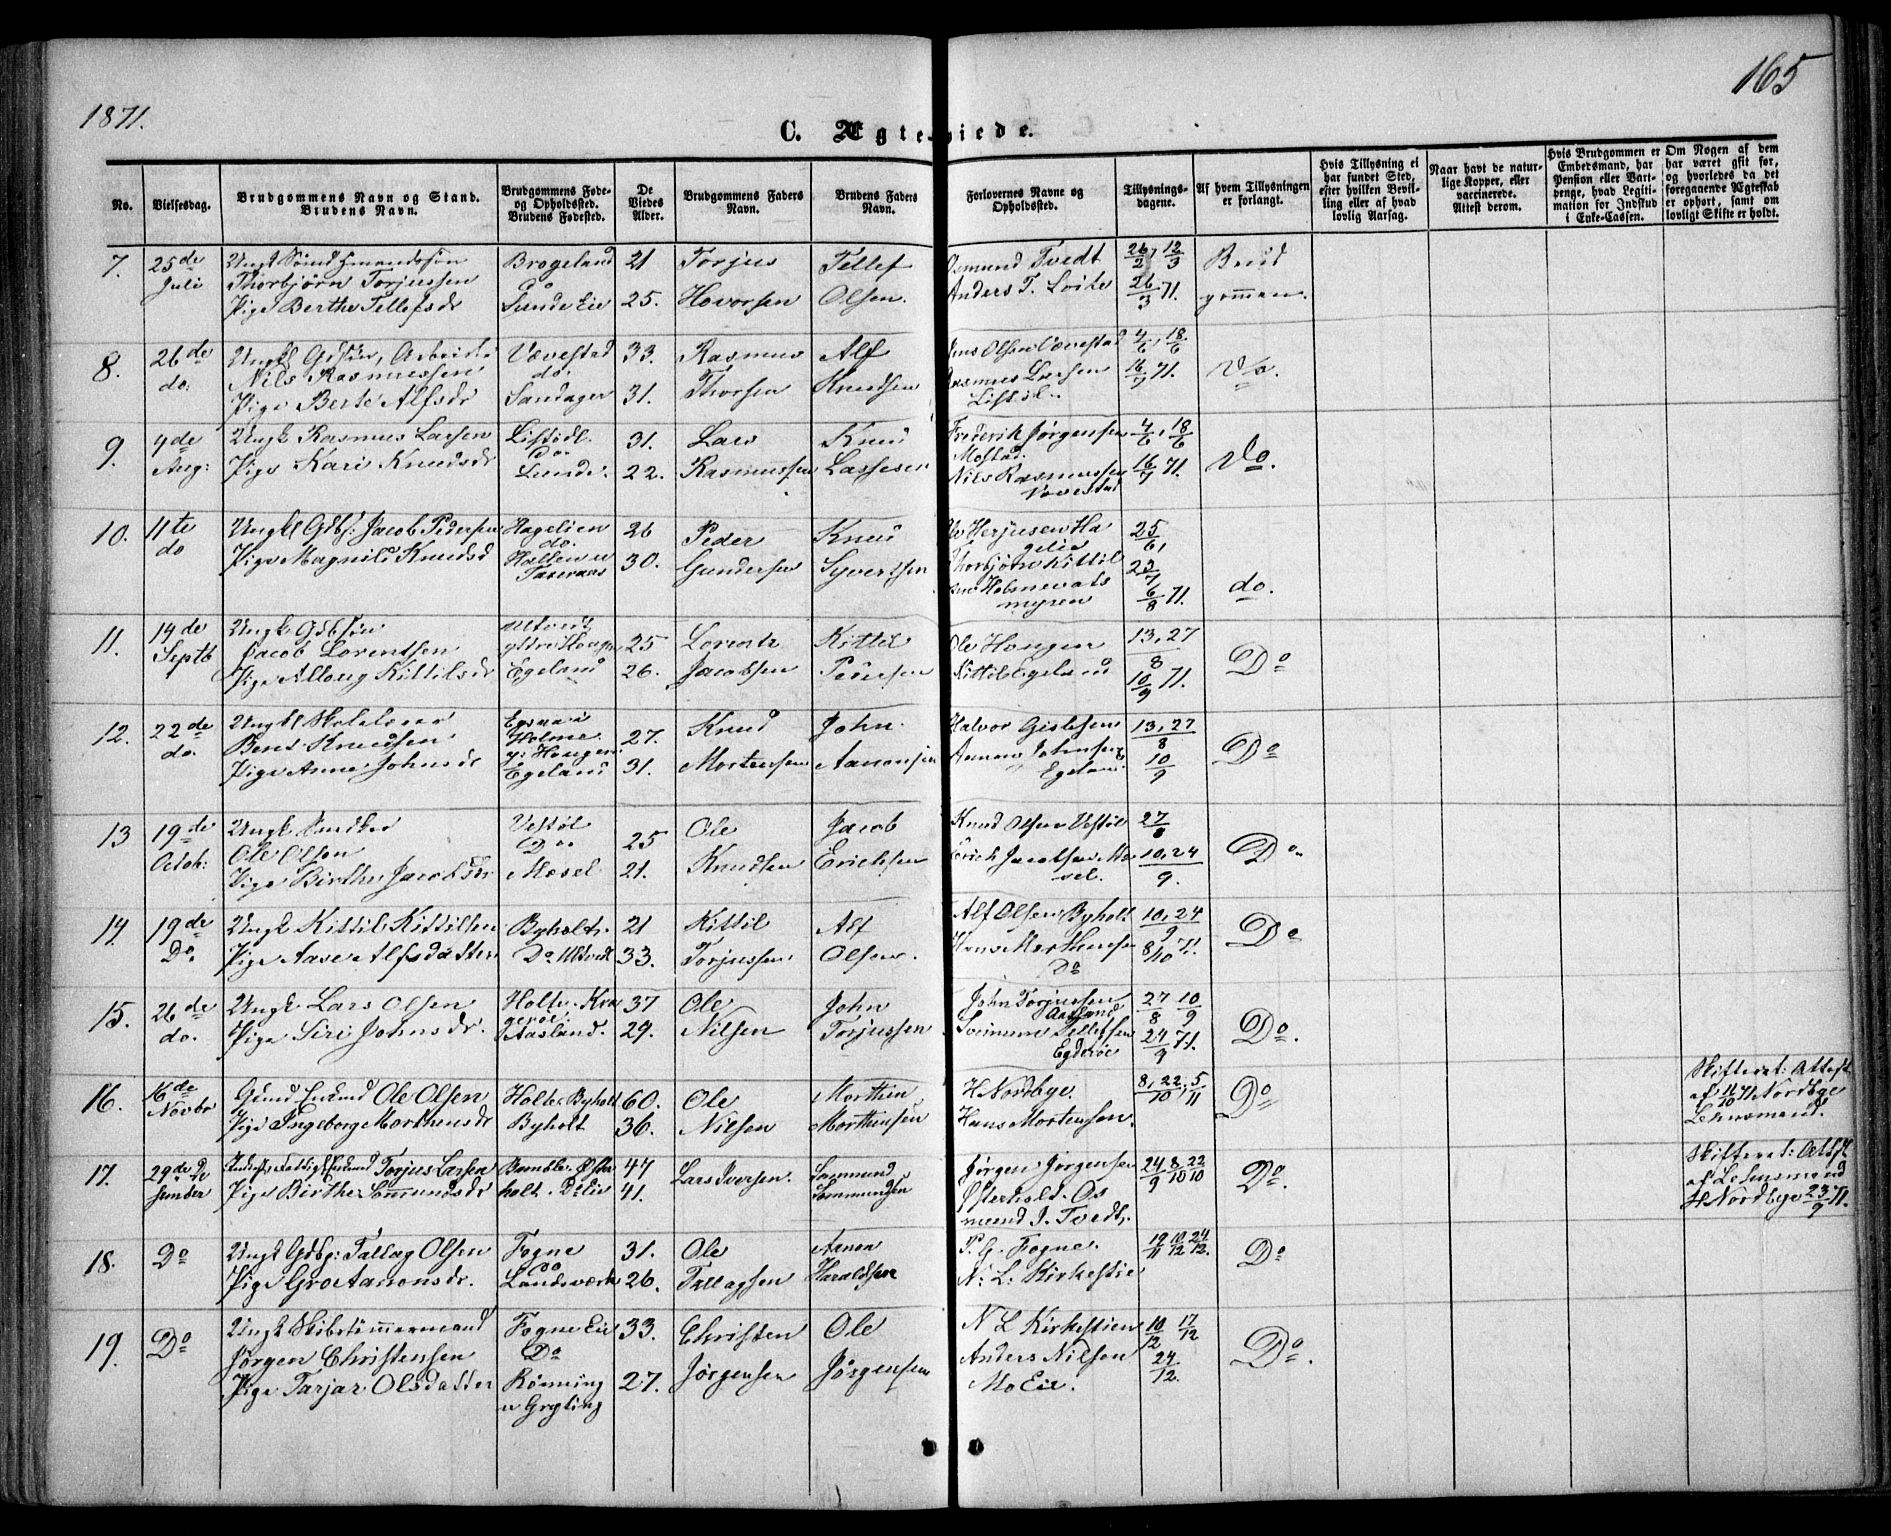 1871.
165
C. Ægteviede.
No.
Vielsesdag.
Brudgommens Navn og Stand.
Brudens Navn.
Brudgommens Føde- og Opholdssted.
Brudens Fødested.
De Viedes Alder.
Brudgommens Faders Navn.
Brudens Faders Navn.
Forlovernes Navne og Opholdssted.
Tillysnings-dagene.
Af hvem Tillysningen er forlangt.
Hvis Tillysning ei har fundet Sted, efter hvilken Bevilling eller af hvad lovlig Aarsag.
Naar havt de naturlige Kopper, eller vaccinerede. Attest derom.
Hvis Brudgommen er Embedsmand, har Pension eller Vartpenge, hvad Legitimation for Indskud i Enke-Cassen.
Om Nogen af dem har været gift før, og hvorledes da det foregaaende Ægteskab er ophørt, samt om lovligt Skifte er holdt.
7. 25de Juli
Thorbjørn Torjussen
Pige Berthe Tellefsdr
Brogeland
do
Lunde Eie
21
25.
Torjus
Hovorsen
Tellef
Olsen.
Osmund Tvedt
Anders T. Loite
26/2, 12/3
26/3 71.
Brud
gommen.
8. 26de do.
Nils Rasmussen
Pige Berte Alfsdr
Vævestad
do.
Sandager
33.
31.
Rasmus
Thorsen
Alf
Knudsen
Jens Olsen Vævestad
Rasmus Larsen
4/6, 18/6
16/7 71.
Do.
9. 4de Aug:
Ungk Rasmus Larsen
Pige Kari Knudsdr
Do.
Lunde.
31.
22.
Lars
Rasmussen
Knud
Lassesen
Frederik Jørgensen
Mostad.
Nils Rasmussen
Vovestad
4/6, 18/6
16/7 71.
Do.
10. 11te do
Ungkl Gdbr: Jacob Pedersen
Pige Magnild Knudsd
Hagelien
do.
26
30.
Peder
Gundersen
Knud
Syvertsen
Ole Herjusen Ha
gelie
Thorbjørn Kittil
sen Holmevats
myren
25/6,
23/7
6/8 71.
do.
11. 14de Septb
Ungk Gdbsøn
Jacob Lorentsen
Pige Alborg Kittilsdr
Egeland
25
26.
Lorents
Jacobsen
Kittel
Pedersen
Ole Hougen
Kittil Egeland
13, 27/8
10/9 71.
Do
12. 22de do.
Ungkl Skolelærer
Bent Knudsen
Pige Anne Johnsdr
Holme
Egeland
27.
31.
Knud
Mortensen
John.
Aanonsen
Halvor Gislesen
Aanon Johnsen
Egeland
13, 27/8
10/9
Do
13 19de Octob:
Ungk Snedker
Ole Olsen
Pige Birthe Jacobsdr
Vestøl
Do
Mæsel
25
21.
Ole
Knudsen
Jacob
Ericksen
Knud Olsen Vestøl
Erich Jacobsen Mæ
sel.
27/8
10, 24/9.
Do.
14. 19de Do.
Ungk Kittil Kittilsen
Pige Aase Alfsdatter
Byholt.
Do
21
33.
Kittil
Torjussen.
Alf
Olsen.
Alf Olsen Byholt
Hans Morthensen
Do
10, 24/9
8/10 71.
Do
15. 26de do.
Ungk. Lars Olsen
Pige Siri Johnsdr.
Holte. Kra
gerøe.
Aasland.
37
29.
Ole
Nilsen
John
Torjussen
John Torjussen
Aasland
Tellefsen
Egderøe
27/8 10/9
24/9 71.
Do.
16. 16de Novbr
Ole Olsen
Pige Ingeborg Morthensdr
Holte Byholt
Byholt
60.
36.
Ole
Nilsen
Morthen
Morthensen
H. Nordbye.
Hans Mortensen.
8, 22/10, 5/11
Do
Skifteret: Attest
af 11/10 71 Nordbye
Lehnsmand.
17. 29de De
sember
Torjus Larsen
Pige Birthe Sommundsdr
Bamble. Øster
holt. Do Eie
47
41.
Lars Iversen.
Sommund
Sommundsen
Jørgen Jørgensen
Østerhold. Os
mund J. Tvedt.
24/9 8/10 22/10
Do.
Skifteret: Attest
af Lehnsmand
H Nordbye 23/9 71.
18. Do
Ungk Gdbr: Tallag Olsen
Pige Gro Aanonsdr.
Fogne
do
Landsværk
31.
26.
Ole
Tallagsen
Aanon
Haraldsen
P. G. Fogne.
N: L: Kirkestie
19/11 10/12 24/12.
Do
19. Do
Ungk Skibstømmermand
Jørgen Christensen
Pige Tarjar Olsdatter
Fogne Eie
Do
Rønning
33.
27.
Christen
Jørgensen
Ole
Jørgensen
N L Kirkestien
Anders Nilsen
Mo Eie.
10/12 17/12
24/12.
Do.